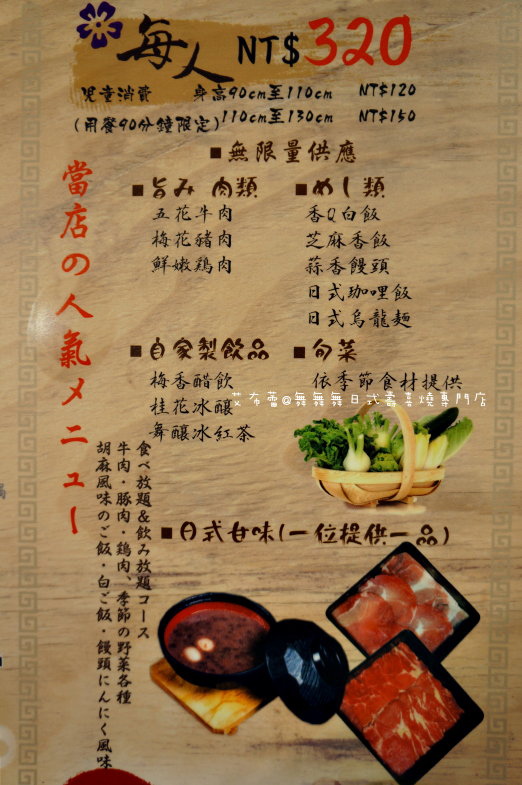 每人 NT$320
兒童消費 身高90cm至110cm NT$120
(用餐90分鐘限定) 110cm至130cm NT$150
■無限量供應
■旨み 肉類
五花牛肉
梅花豬肉
鮮嫩鶏肉
■めし類
香Q白飯
芝麻香飯
蒜香饅頭
日式珈哩飯
日式烏龍麵
■自家製飲品
梅香醋飲
桂花冰釀
舞釀冰紅茶
■旬菜
依季節食材提供
艾布蕾@舞舞舞日式壽喜燒專門店
■日式甘味(一位提供一品)
當店の人氣メニュー
食べ放題&飲み放題コース
牛肉・豚肉・鶏肉、季節の野菜各種
胡麻風味のご飯・白ご飯・饅頭にんにく風味